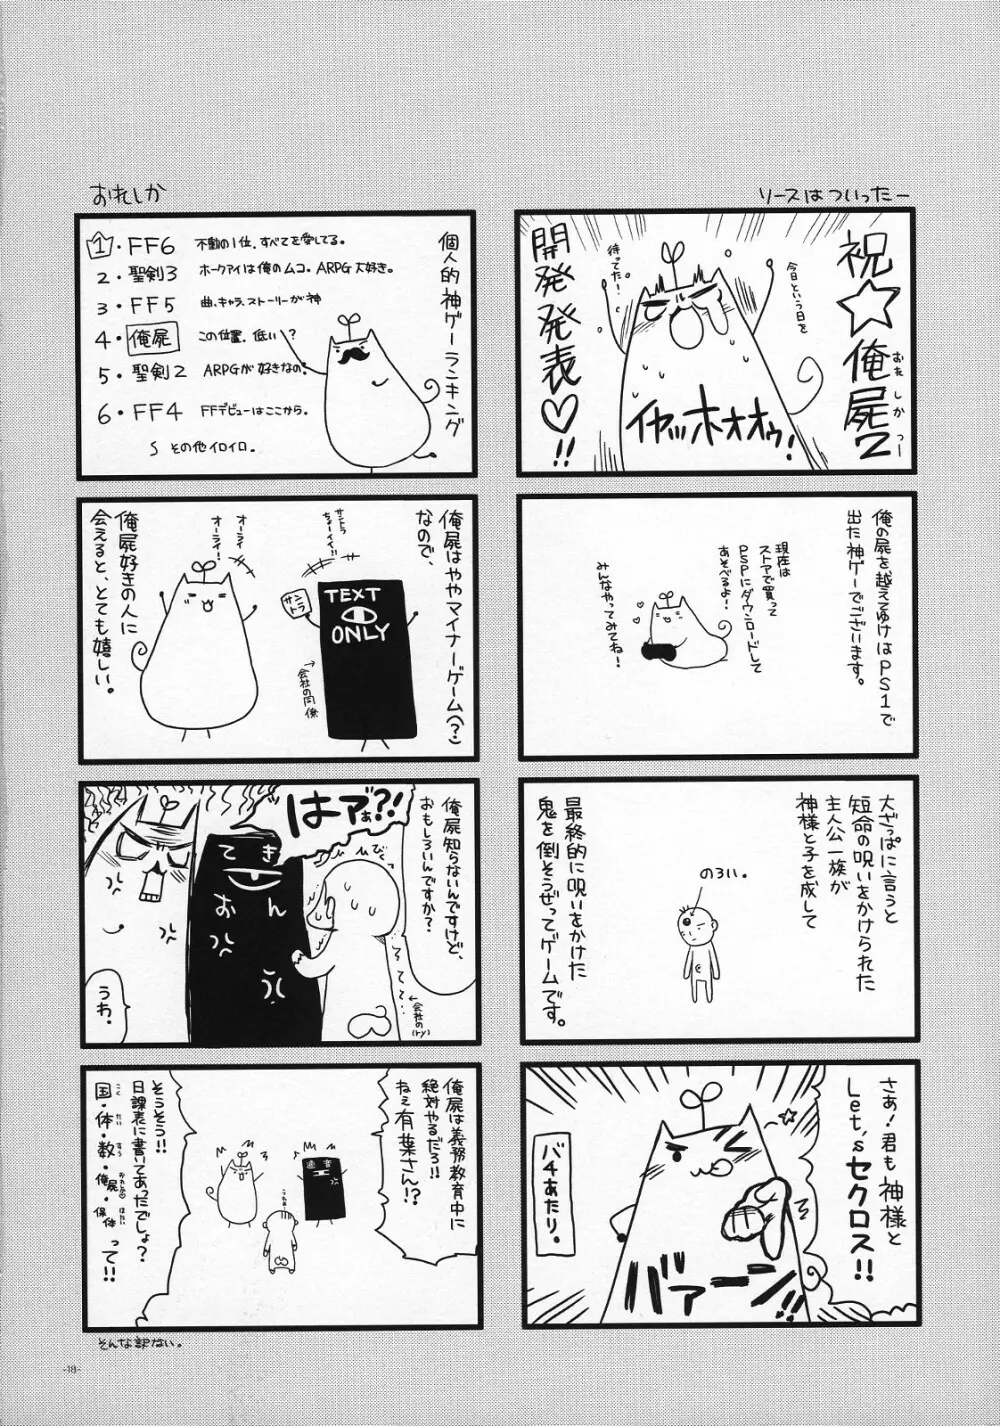 ソースはついったー
祝☆俺屍2
おれしかつー
開発発表♡!!
今日という日を
待ってた!
イヤッホオオゥ!
俺の屍を越えてゆけはPS1で
出た神ゲーでございます。
現在は
ストアで買って
PSPにダウンロードして
あそべるよ!
みんなやってみてね!
大ざっぱに言うと
短命の呪いをかけられた
主人公一族が
神様と子を成して
のろい。
最終的に呪いをかけた
鬼を倒そうぜってゲームです。
さぁ!君も神様と
Let'sセクロス!!
バチあたり。
バァーン!!
おれしか
個人的神ゲーランキング
1・FF6 不動の1位、すべてを愛してる。
2・聖剣3 ホークアイは俺のムコ。ARPG大好き。
3・FF5 曲、キャラ、ストーリーが神
4・俺屍 この位置、低い?
5・聖剣2 ARPGが好きなの。
6・FF4 FFデビューはここから。
S その他イロイロ。
俺屍はややマイナーゲーム(?)
なので、
サントラ
ちょーイイ!!
TEXT
ONLY
サントラ
→会社の同僚
オーライ
オーライ!
俺屍好きの人に
会えると、とても嬉しい。
俺屍知らないんですけど、
おもしろいんですか?
はァ"ぁ?!
びくっ
てき
おん
←会社の(ry)
うわ。
俺屍は義務教育中に
絶対やるだろ!!
ねぇ有葉さん!?
適音
うわぁ
そうそう!!
日課表に書いてあったでしょ?
国・体・数・俺屍・保体って!!
こく たい すう おれしか ほたい
そんな訳ない。
-18-